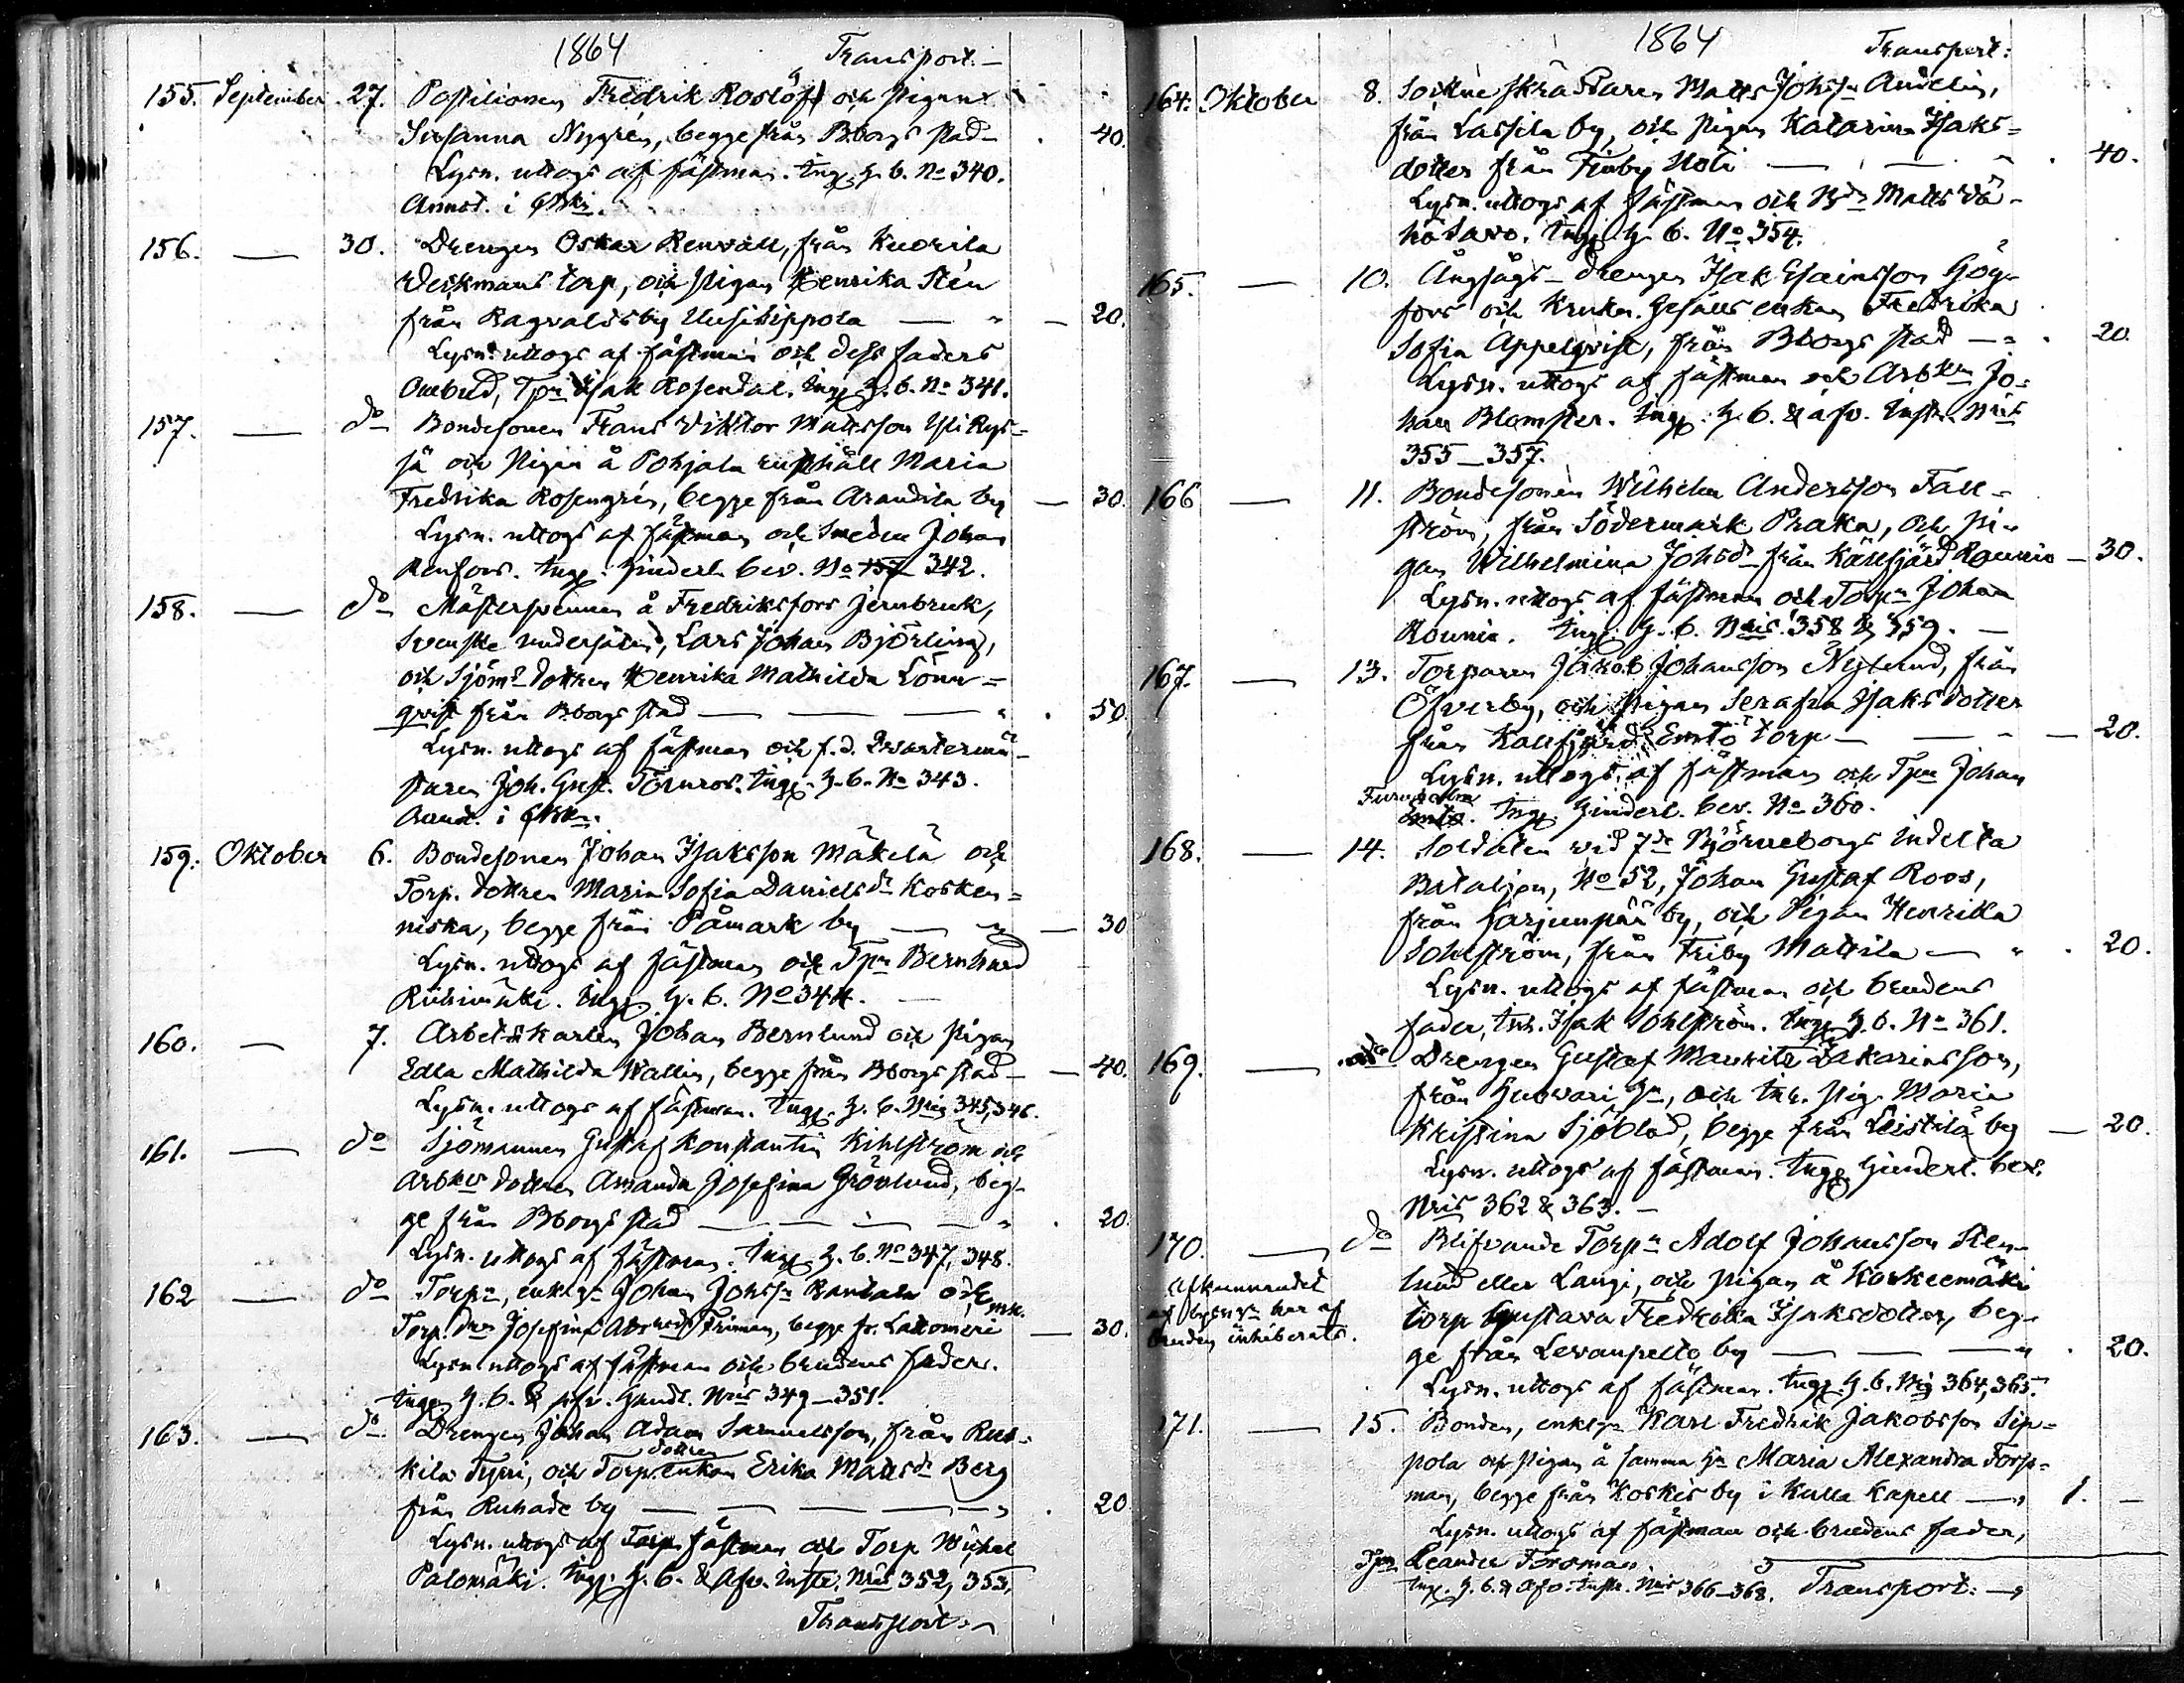 1864 Transport.
155. September 27. Postilionen Fredrik Roslöf och pigan
Susanna Nygrén, begge från Bborgs stad 40.
Lysn. uttogs af fästman. Ingg. h. b. No 340.
Annot. i
156. — 30. Drengen Oskar Renvall, från Kuorila
Weckmans torp, och pigan Henrika Stén
från Ragvaldsby Uusiseppola — " — 20.
Lysn. uttogs af fästman och dess faders
Ombud, Tpn Isak Rosendal. Ingg. h. b. No 341.
157. — do Bondesonen Frans Viktor Mattsson Yli Rys-
sä och Pigan å Pohjala rusthåll Maria
Fredrika Rosengrén, begge från Arandila by — 30.
Lysn. uttogs af fästman och Smeden Johan
Renfors. Ingg. hinderl. bev. No 157 342.
158. — do Mästersvennen å Fredriksfors jernbruk,
Svenske undersåten, Lars Johan Björling,
och Sjöms dottren Henrika Mathilda Lönn-
qvist från Bborgs stad — — — " . 50
Lysn. uttogs af fästman och f.d. Qvartermä-
staren Joh. Gust. Törnros. Ingg. h. b. No 343.
Annot. i
159. Oktober 6. Bondesonen Johan Isaksson Mäkelä och
Torp. dottren Maria Sofia Danielsdr Kosken-
niska, begge från Påmark by — " — 30
Lysn. uttogs af fästman och Tpn Bernhard
Riihimäki. Ingg. h. b. No 344. —
160. — 7. Arbetskarlen Johan Bernlund och Pigan
Edla Mathilda Wallin, begge från Bborgs stad — 40.
Lysn. uttogs af fästman. Ingg. h. b. Nris 345, 346.
161. — do Sjömannen Gustaf Konstantin Kihlström och
Arbkrs dottren Amanda Josefina Grönlund, beg-
ge från Bborgs stad — — — — " . 20.
Lysn. uttogs af fästman. Ingg. h. b. No 347, 348.
162 — do Torpn, enkl. Johan Johsn Rantala och
Torp. Josefina Friman, begge fr. Lattomeri — 30.
Lysn. uttogs af fästman och brudens fader.
Ingg. h. b. & afv. handl. Nris 349–351.
163. — do Drengen Johan Adam Samuelsson, från Rus-
dottren
kila Tyni, och Torp. enkan Erika Mattsdr Berg
från Ruhade by — — — — " . 20
Lysn. uttogs af Torp. fästman och Torp Michel
Palomäki. Ingg. h. b. & Afv. Instr. Nris 352, 353.
Transport. "
1864 Transport:
164. Oktober 8. Sockneskräddaren Matts Johsn Andelin,
från Lassila by, och pigan Katarina Isaks-
dotter från Finby Uoti — — " . 40.
Lysn. uttogs af fästman och Matts Vä-
hätavo. Ingg. h. b. No 354.
165. — 10. Ångsågs-drengen Isak Esaiasson Hög-
fors och Krukm. Gesälls enkan Fredrika
Sofia Appelqvist, från Bborgs stad — " . 20.
Lysn. uttogs af fästman och Arbkn Jo-
han Blomster. Ingg. h. b. & afv. Instr. Nris
355–357.
166 — 11. Bondesonen Wilhelm Andersson Fall-
ström, från Södermark Praka, och Pi-
gan Wilhelmina Johsdr från Källfjärd Rounio — 30.
Lysn. uttogs af fästman och Torpn Johan
Rounio. Ingg. h. b. Nris 358 & 359. —
167. — 13. Torparen Jakob Johansson Nylund, från
Öfverby, och Pigan Serafia Isaksdotter
från Kallfjärd Emtö torp — — " — 20.
Lysn. uttogs af fästman och Tpn Johan
Emtö. Ingg. hinderl. bev. No 360.
168. — 14. Soldaten vid 7de Björneborgs indelta
Bataljon, No 52, Johan Gustaf Roos,
från Harjunpää by, och Pigan Henrika
Sohlström, från Friby Mattila — " . 20.
Lysn. uttogs af fästman och brudens
fader, Inh. Isak Sohlström. Ingg. h. b. No 361.
169. — do Drengen Gustaf Mauritz Zakariasson,
från Hn, och Inh. Pig. Maria
Kristina Sjöblad, begge från Leistilä by — 20.
Lysn. uttogs af fästman. Ingg. hinderl. bev.
Nris 362 & 363. —
170. — do Blifvande Torpn Adolf Johansson Sten-
lund eller Langi, och pigan å Korkeemäki
torp Gustava Fredrika Isaksdotter, beg-
ge från Levanpelto by — — — " . 20.
Afkunnandet
af lysn. har af
bruden inhiberats.
Lysn. uttogs af fästman. Ingg. h. b. Nris 364, 365.
171. — 15. Bonden, enkl. Karl Fredrik Jakobsson Sip-
pola och Pigan å samma hn Maria Alexandra Fors-
man, begge från Koskis by i Kulla Kapell — " 1. —
Lysn. uttogs af fästman och brudens fader,
Tpn Leander Forsman.
Ingg. h. b. & afv. Instr. Nris 366–368. Transport: — "